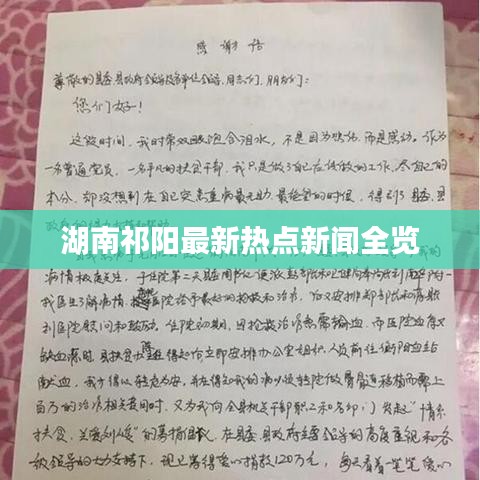 感谢信
尊敬的县委、县政府领导及各单位领导、同志们、朋友们:
您们好!
这段时间,我时常双眼饱含泪水,不是因为悲伤,而是感动。作为
一名普通党员,一名平凡的扶贫干部,我只是做了自己应该做的工作,尽自己的
本分,却没想到在自己突患重病最无助、最绝望的时候,得到了县委、县
湖南祁阳最新热点新闻全览
病情极度关注,于住院第二天
我医生了解病情,医院给予最好的抢救和治疗,后又安排
到医院慰问和鼓励。住院初期,因抢救治疗急需输血,而医院血库又
缺血浆时,县扶贫办得知后立即安排办公室组织人员前往衡阳血站
献血,我才得以转危为安,并在得知我的病以后转院做骨髓移植而需上
百万的治疗相关费用时,又为我向全县机关干部职工和名印门发起“情系
扶贫,关爱刘峻”的募捐倡议,在县委县政府主要领导的高度重视和各
级领导的大力支持下,现已筹得爱心捐款120万元,每天看着一笔笔爱心